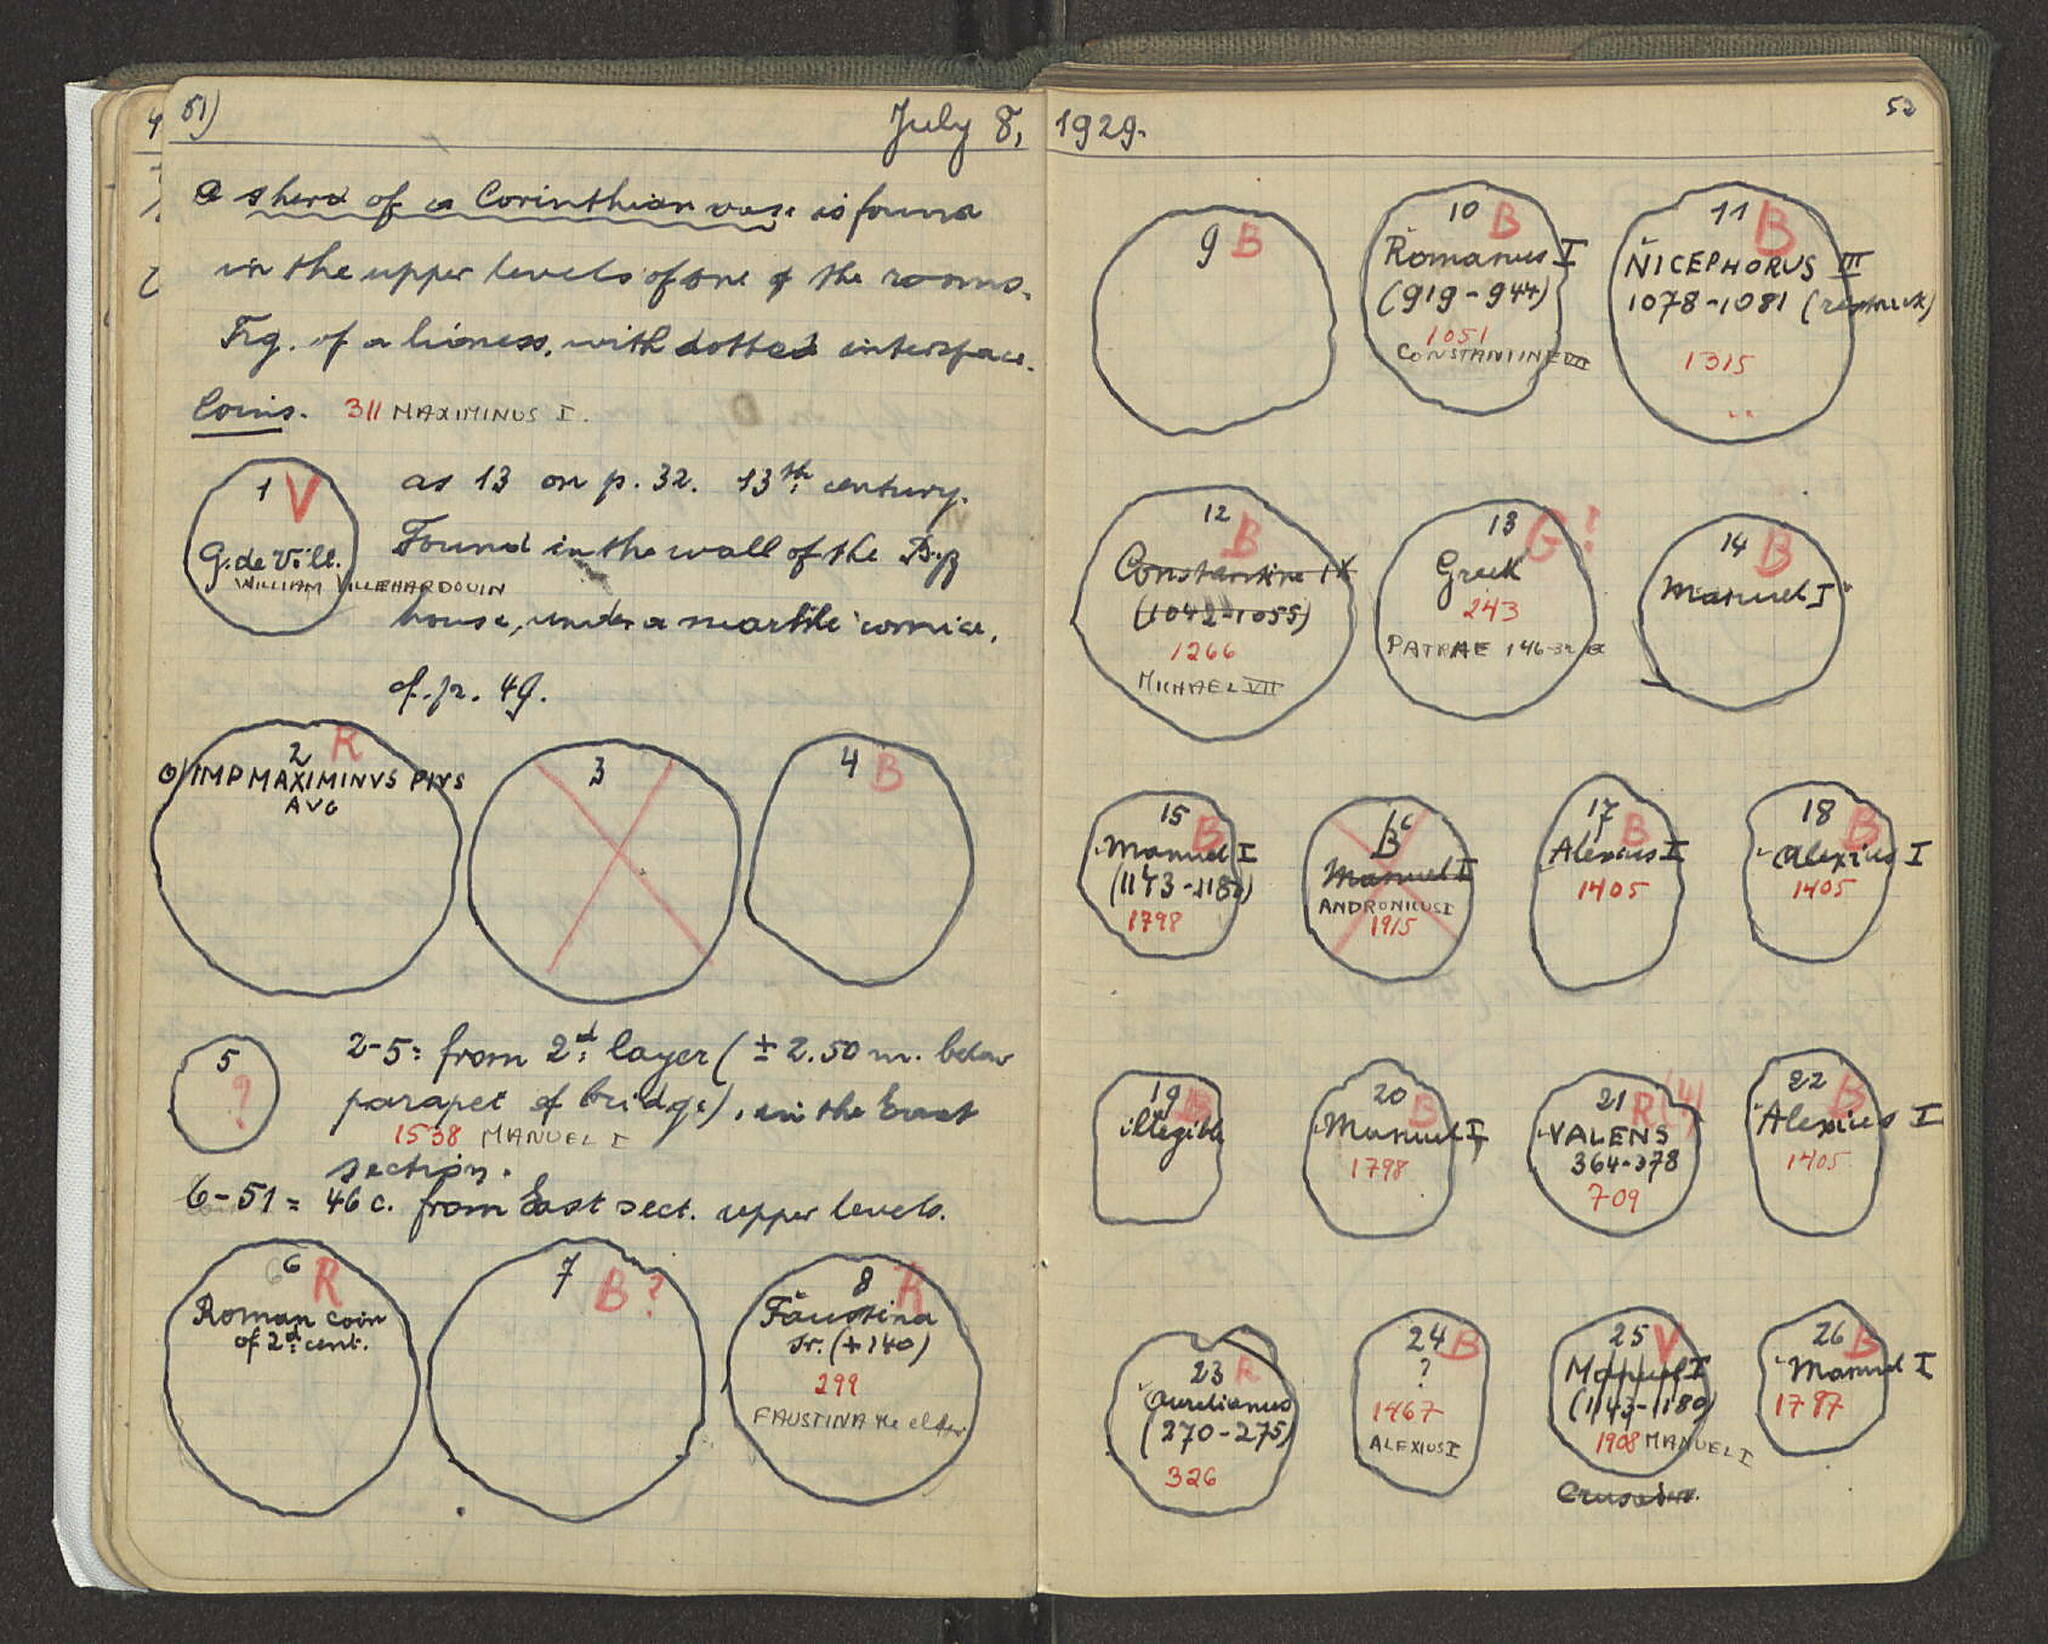 51)
July 8,
a sherd of a Corinthian vase is found
in the upper levels of one of the rooms.
Frg. of a lioness, with dotted interspace.
Coins. 311 MAXIMINUS I.
1 V
G. de Vill.
WILLIAM VILLEHARDOUIN
as 13 on p. 32. 13th century.
Found in the wall of the Byz
house, under a marble cornice,
cf. p. 49.
2 R
O/ IMP MAXIMINVS PIVS
AVG
3
4 B
5
?
2-5: from 2d layer (± 2.50 m. below
parapet of bridge), in the East
1538 MANUEL I
section.
6-51 = 46 c. from East sect. upper levels.
6 R
Roman coin
of 2d cent.
7 B?
8 R
Faustina
sr. (+140)
299
FAUSTINA the elder
1929.
52
9 B
10 B
Romanus I
(919-944)
1051
CONSTANTINE VII
11 B
NICEPHORUS III
1078-1081 (restruck)
1315
12 B
Constantine IX
(1042-1055)
1266
MICHAEL VII
13 G?
Greek
243
PATRAE 146-32
14 B
Manuel I
15 B
Manuel I
(1143-1180)
1798
16
B
Manuel I
ANDRONICUS I
1915
17 B
Alexius I
1405
18 B
Alexius I
1405
19 B
illegible
20 B
Manuel I
1798
21 R (4)
VALENS
364-378
709
22 B
Alexius I
1405
23 R
Aurelianus
(270-275)
326
24 B
?
1467
ALEXIUS I
25 V
Manuel I
(1143-1180)
1908 MANUEL I
Crusader.
26 B
Manuel I
1797